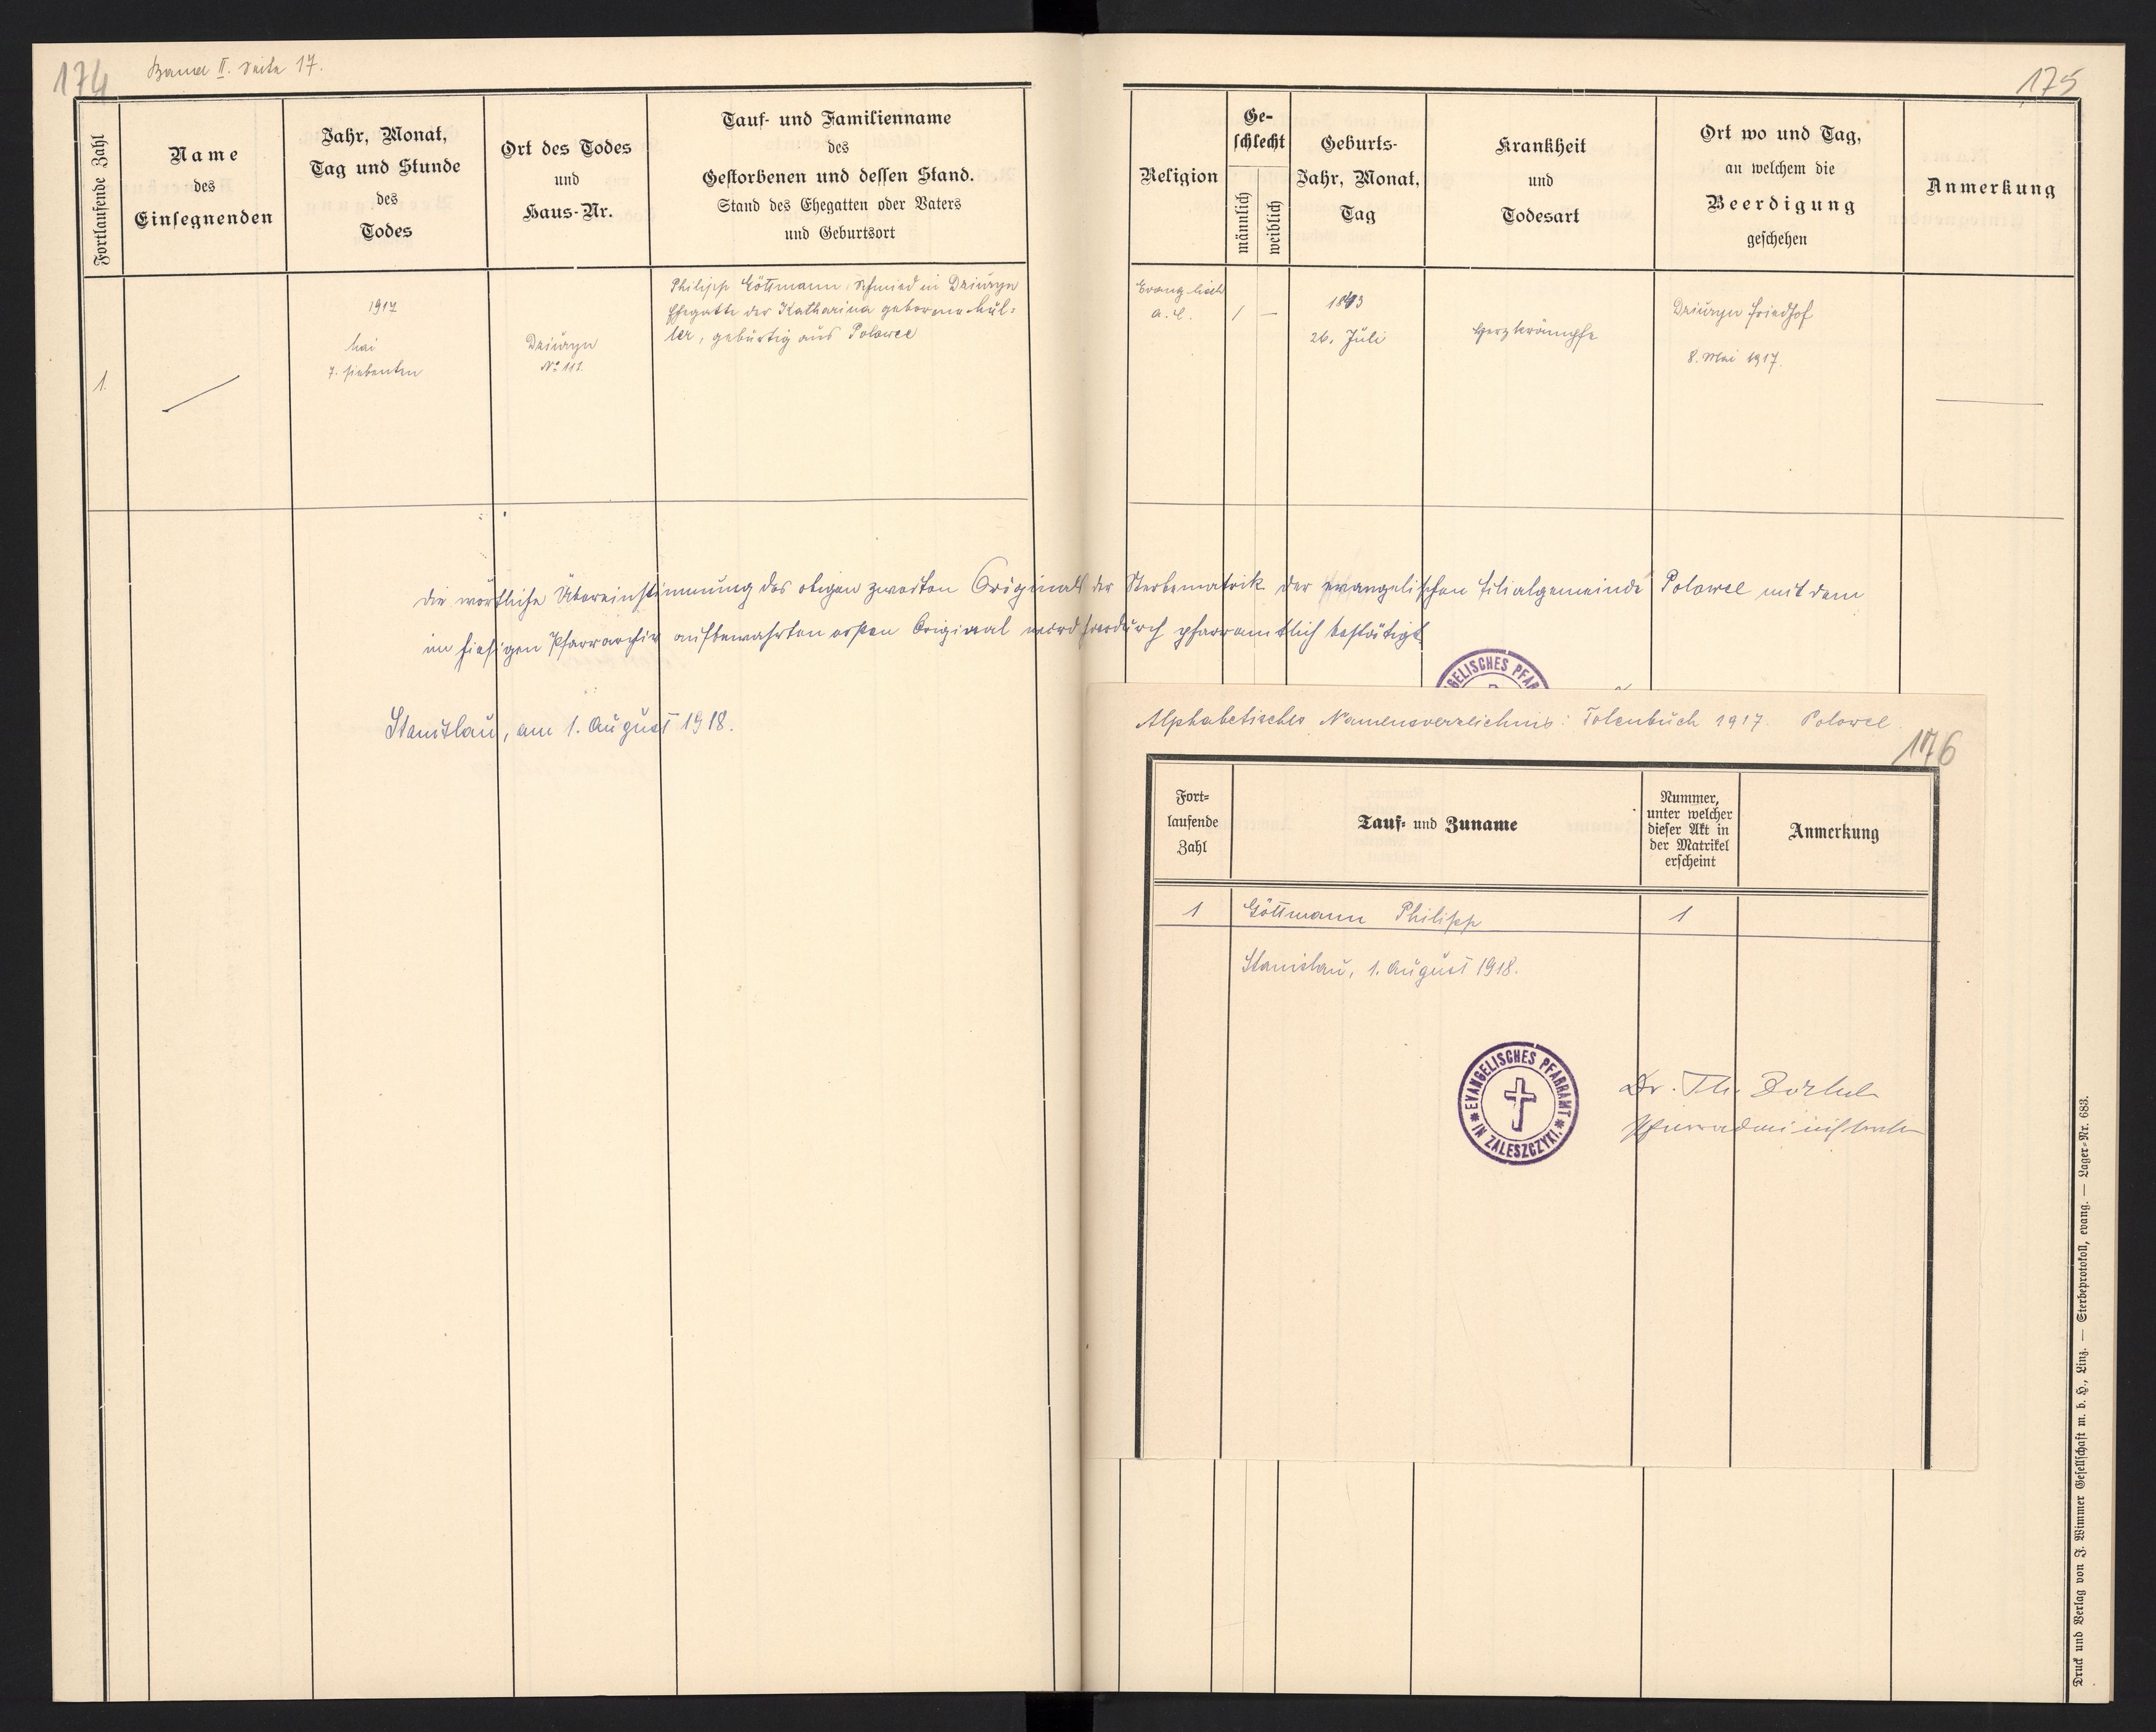 174
Band II. Seite 17.
175
Fortlaufende Zahl
Name
des
Einsegnenden
Jahr, Monat,
Tag und Stunde
des
Todes
Ort des Todes
und
Haus-Nr.
Tauf- und Familienname
des
Gestorbenen und dessen Stand.
Stand des Ehegatten oder Vaters
und Geburtsort
Religion
Ge-
schlecht
männlich
weiblich
Geburts-
Jahr, Monat,
Tag
Krankheit
und
Todesart
Ort wo und Tag,
an welchem die
Beerdigung
geschehen
Anmerkung
1.
1917
Mai
7. siebenten
Dziuryn
No 111.
Philipp Göttmann, Schmied in Dziuryn
Ehegatte der Katharina geborene Mül-
ler, gebürtig aus Polowce
Evanglisch
A. C.
/ —
26. Juli
Herzkrämpfe
Dziuryn Friedhof
8. Mai 1917.
Die wörtliche Übereinstimmung des obigen zweiten Originals der Sterbematrik der evangelischen Filialgemeinde Polowce mit dem
im hiesigen Pfarrarchiv aufbewahrten ersten Original wird hierdurch pfarramtlich bestätigt
Stanislau, am 1. August 1918.
GELISCHES PFAR
Alphabetisches Namensverzeichnis: Totenbuch 1917. Polowce.
176
Fort-
laufende
Zahl
Tauf- und Zuname
Nummer,
unter welcher
dieser Akt in
der Matrikel
erscheint
Anmerkung
1 Göttmann Philipp 1
Stanislau, 1. August 1918.
EVANGELISCHES PFARRAMT
IN ZALESZCZYKI.
Dr. Th.
Pfarradministrator
Druck und Verlag von J. Wimmer Gesellschaft m. b. H., Linz. — Sterbeprotokoll, evang. — Lager-Nr. 683.